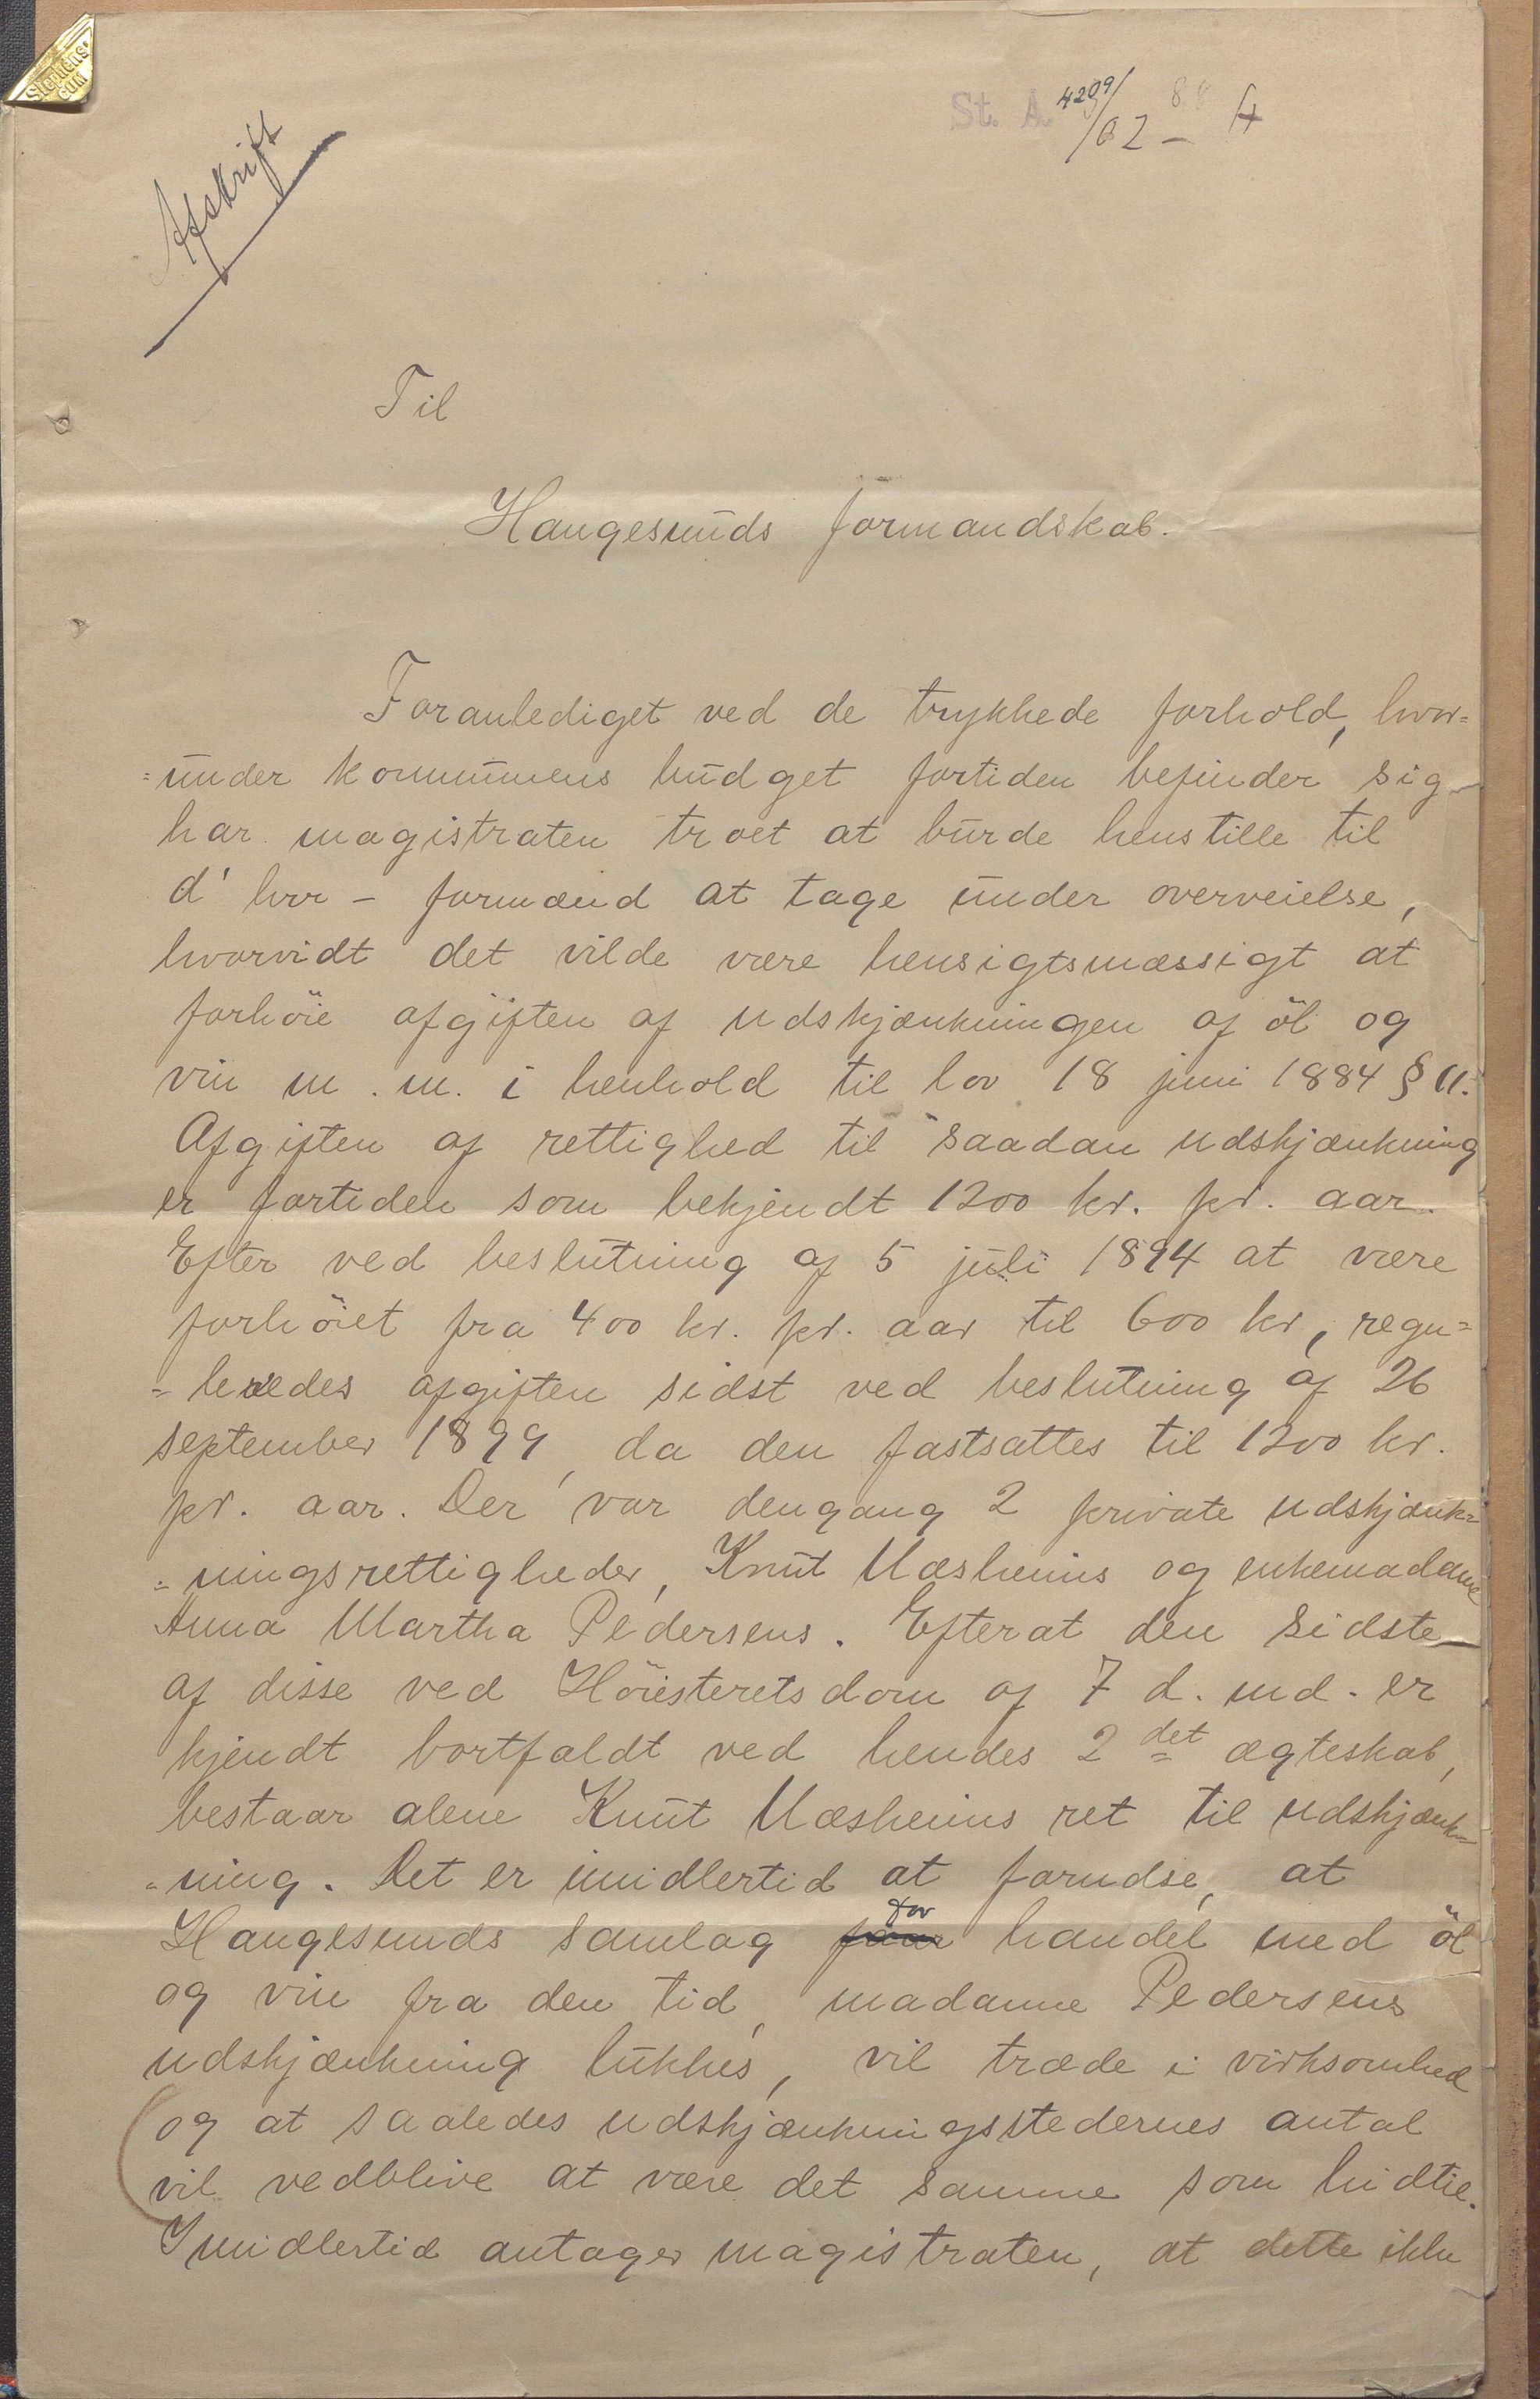 Stephens' GUM
St. A. 4209/02 – 4
Afskrift
Til
Haugesunds formandskab.
Foranlediget ved de trykkede forhold, hvor=
=under kommunens budget fortiden befinder sig
har magistraten troet at burde henstille til
d' hrr – formænd at tage under overveielse,
hvorvidt det vilde være hensigtsmæssigt at
forhöie afgiften af udskjænkningen af öl og
vin m. m. i henhold til lov 18 juni 1884 § 11.
Afgiften af rettighed til saadan udskjænkning
er fortiden som bekjendt 1200 kr. pr. aar.
Efter ved beslutning af 5 juli 1894 at være
forhöiet fra 400 kr. pr. aar til 600 kr, regu=
=leredes afgiften sidst ved beslutning af 26
september 1899, da den fastsattes til 1200 kr.
pr. aar. Der var dengang 2 private udskjænk=
=ningsrettigheder, Knut Næsheims og enkemadame
Anna Martha Pedersens. Efterat den sidste
af disse ved Höiesteretsdom af 7 d. md. er
kjendt bortfaldt ved hendes 2det ægteskab,
bestaar alene Knut Næsheims ret til udskjænk=
=ning. Det er imidlertid at forudse, at
Haugesunds samlag faar for handel med öl
og vin fra den tid, madame Pedersens
udskjænkning lukkes, vil træde i virksomhed
og at saaledes udskjænkningsstedernes antal
vil vedblive at være det samme som hidtil.
Imidlertid antager magistraten, at dette ikke